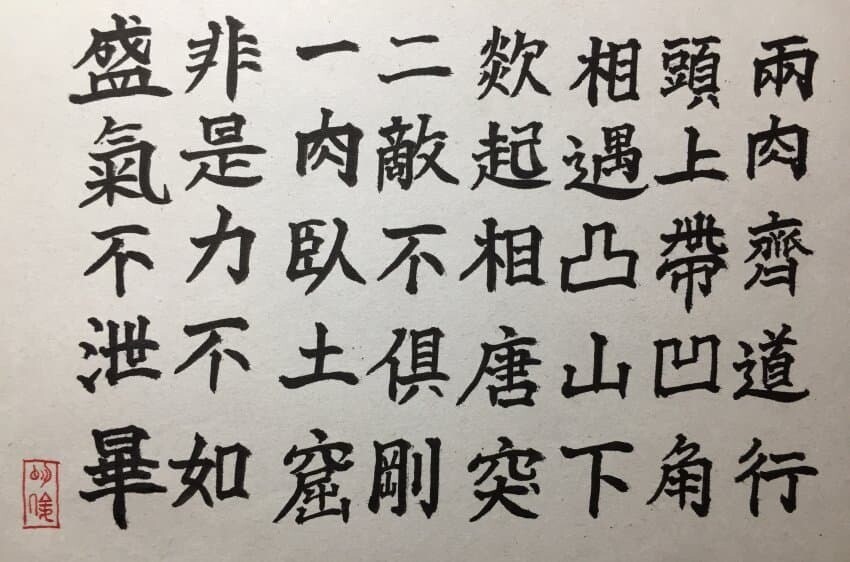 兩肉齊道行
頭上帶凹角
相遇凸山下
欻起相唐突
二敵不俱剛
一肉臥土窟
非是力不如
盛氣不泄畢